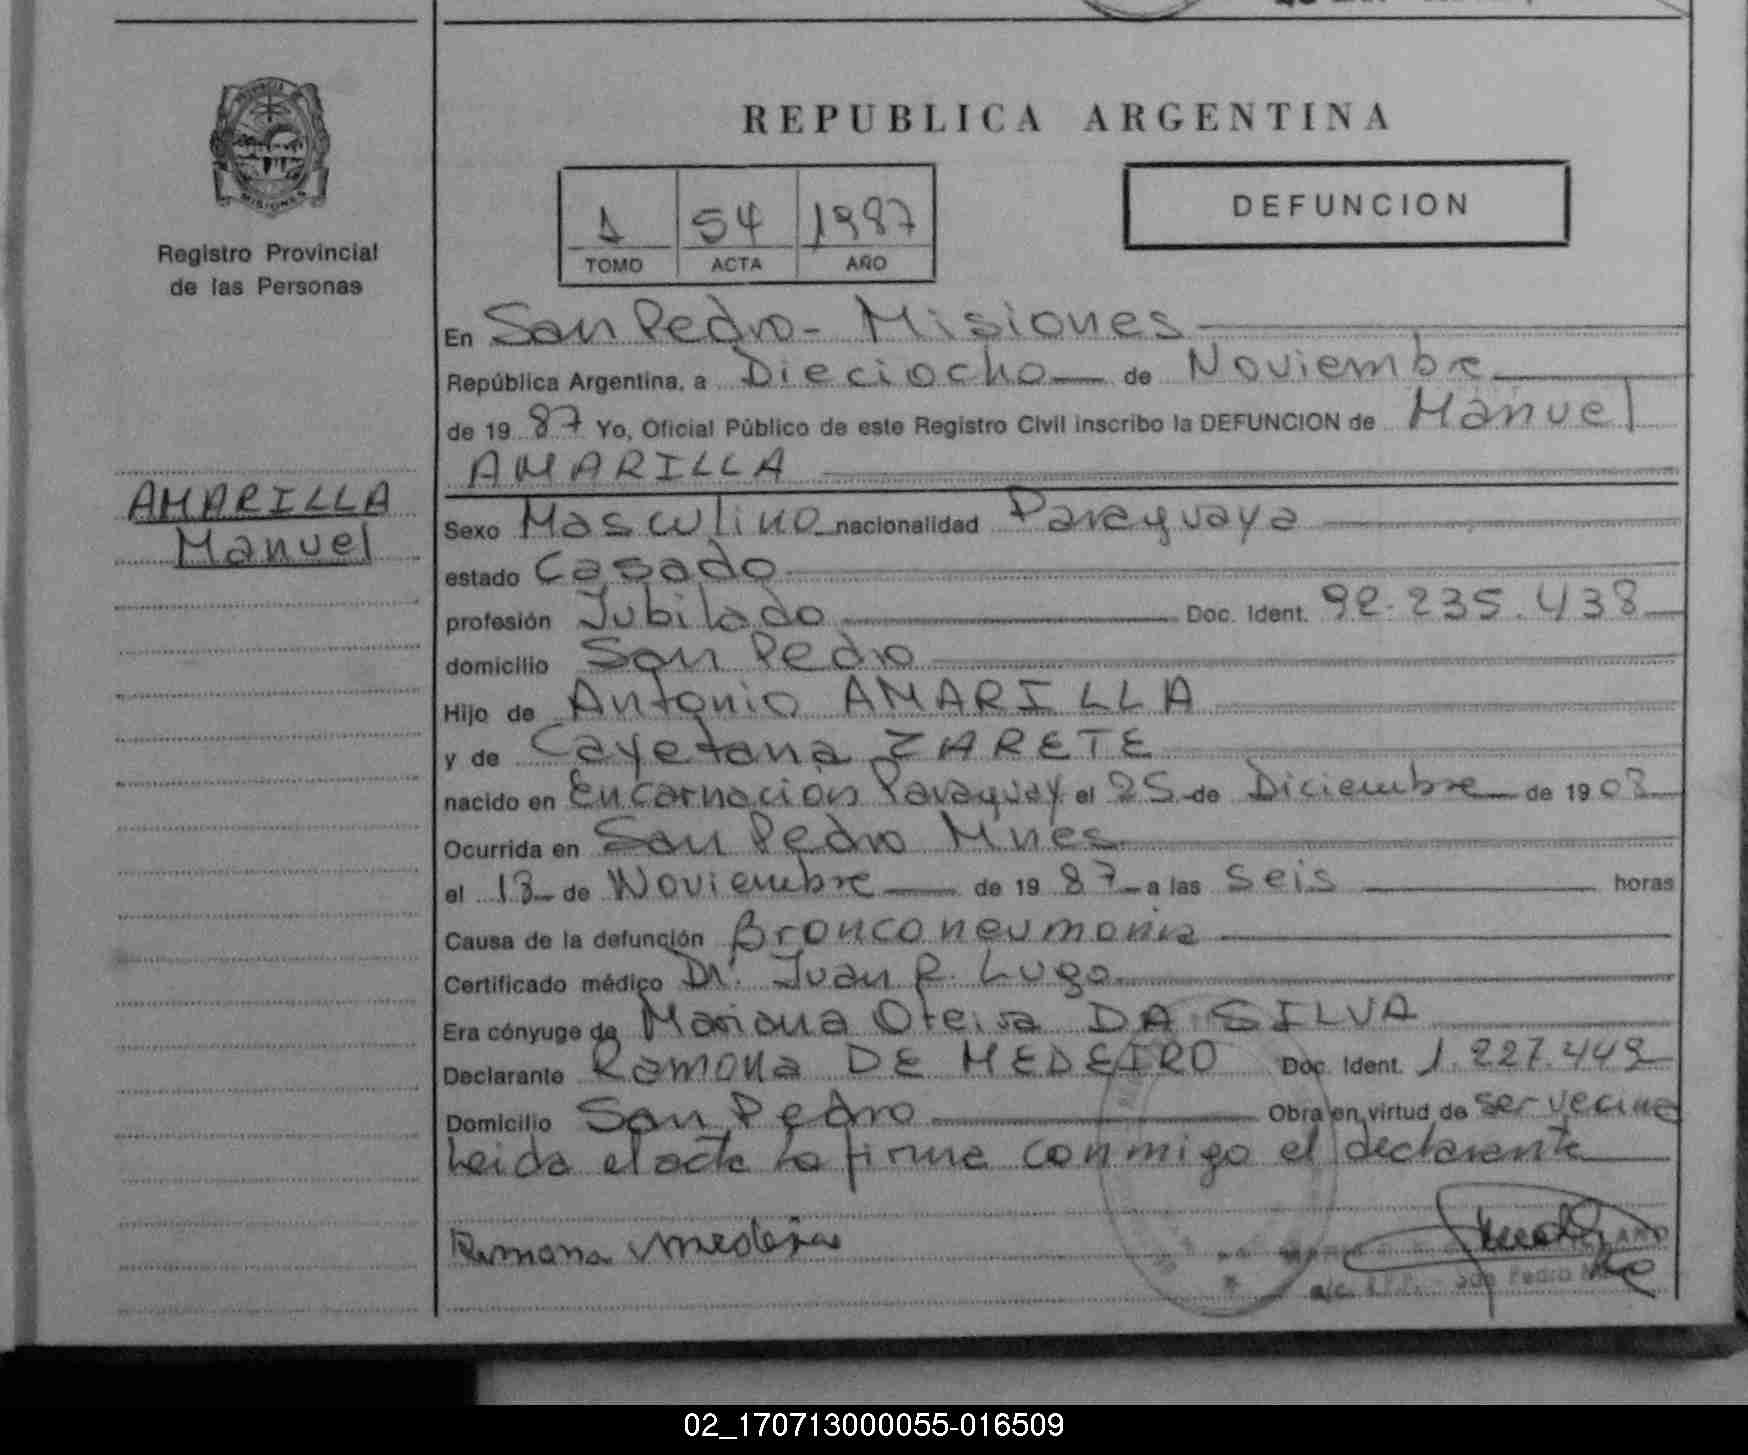 PROVINCIA
MISIONES
Registro Provincial
de las Personas
AMARILLA
Manuel
REPUBLICA ARGENTINA
1 54 1987
TOMO ACTA AÑO
DEFUNCION
En San Pedro - Misiones
República Argentina, a Dieciocho de Noviembre
de 19 87 Yo, Oficial Público de este Registro Civil inscribo la DEFUNCION de Manuel
AMARILLA
Sexo Masculino nacionalidad Paraguaya
estado Casado
profesión Jubilado Doc. Ident. 92.235.438
domicilio San Pedro
Hijo de Antonio AMARILLA
y de Cayetana ZARETE
nacido en Encarnación Paraguay el 25 de Diciembre de 19 03
Ocurrida en San Pedro Mnes
el 13 de Noviembre de 19 87 a las seis horas
Causa de la defunción Bronconeumonia
Certificado médico Dr. Juan R. Lugo
Era cónyuge de Mariana Oteira DA SILVA
Declarante Ramona DE MEDEIRO Doc. Ident. 1.227.449
Domicilio San Pedro Obra en virtud de ser vecina
Leida el acta la firma conmigo el declarante
Ramona medeiro
Pedro
02_170713000055-016509